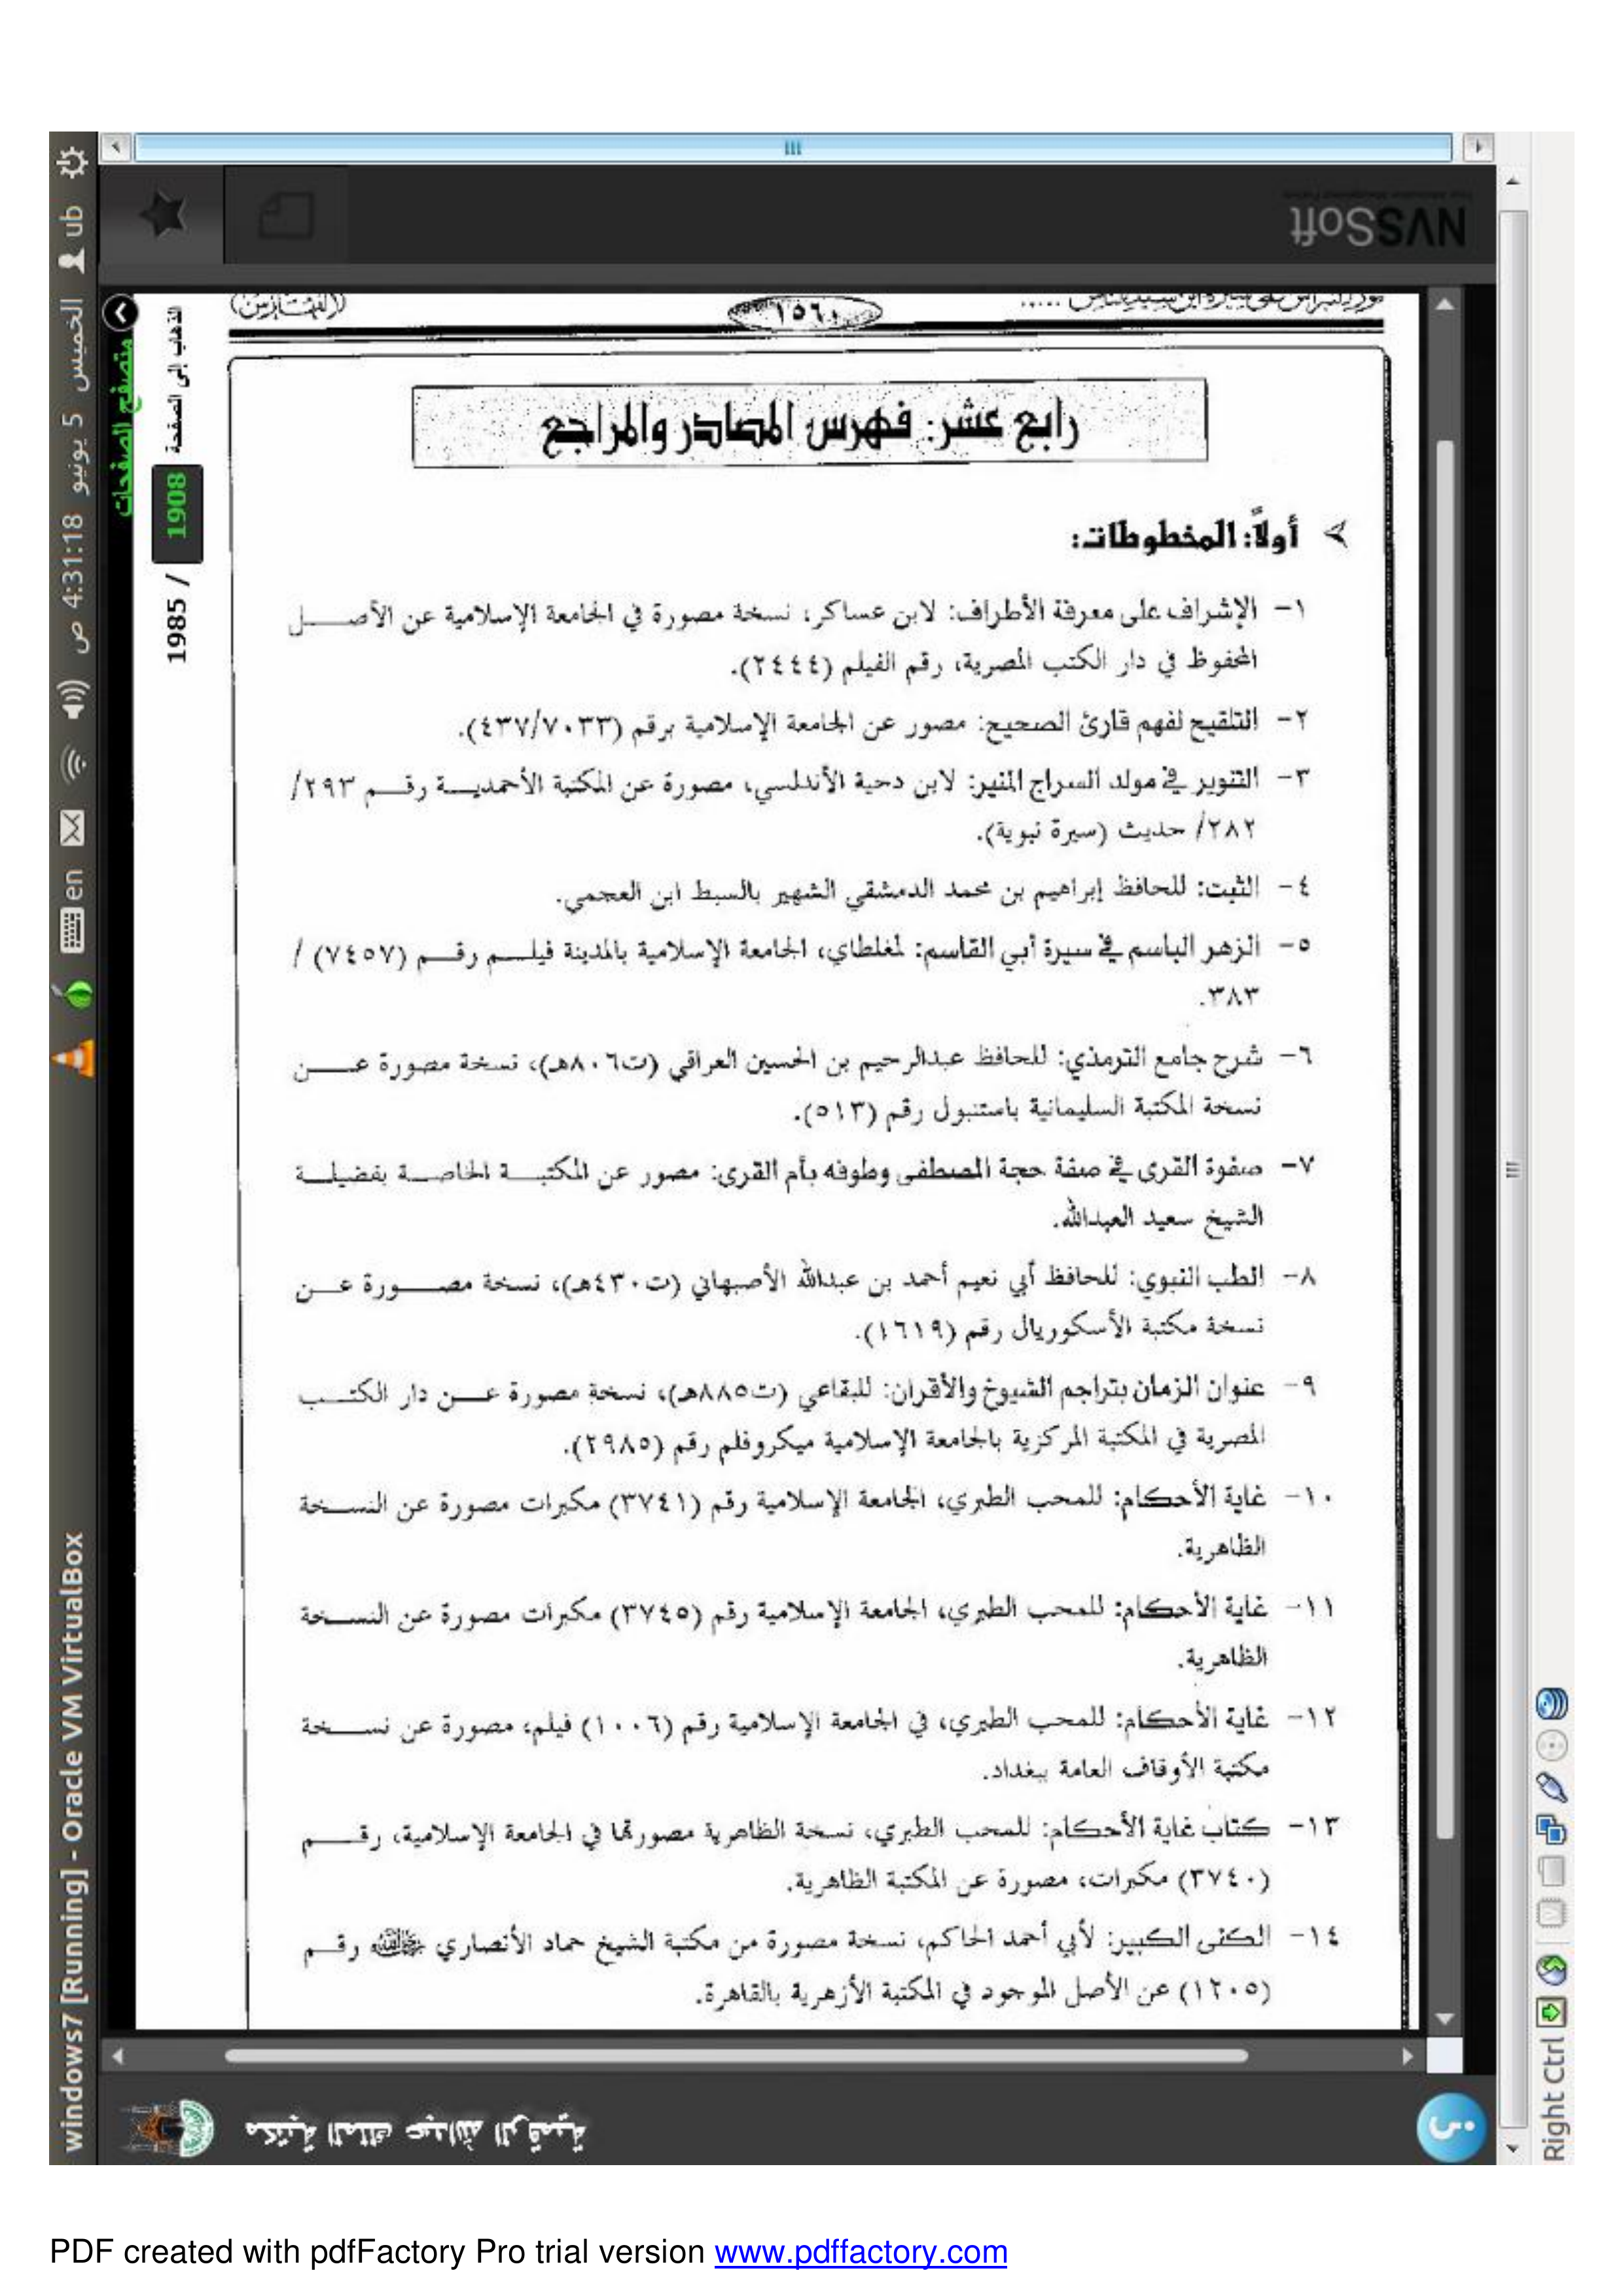 windows7 [Running] - Oracle VM VirtualBox
en
4:31:18 ص
الخميس 5 يونيو
ub
متصفح الصفحات
الذهاب إلى الصفحة
1908
/ 1985
NVSSoft
(الفهارس)
نور النبراس على سيرة ابن سيد الناس .....
رابع عشر: فهرس المصادر والمراجع
أولاً: المخطوطات:
١- الإشراف على معرفة الأطراف: لابن عساكر، نسخة مصورة في الجامعة الإسلامية عن الأصـــل
المحفوظ في دار الكتب المصرية، رقم الفيلم (٢٤٤٤).
٢- التلقيح لفهم قارئ الصحيح: مصور عن الجامعة الإسلامية برقم (٤٣٧/٧٠٣٣).
٣- التنوير في مولد السراج المنير: لابن دحية الأندلسي، مصورة عن المكتبة الأحمديـــة رقـــم ٢٩٣/
٢٨٢/ حديث (سيرة نبوية).
٤- الثبت: للحافظ إبراهيم بن محمد الدمشقي الشهير بالسبط ابن العجمي.
٥- الزهر الباسم في سيرة أبي القاسم: لمغلطاي، الجامعة الإسلامية بالمدينة فيلـــم رقـــم (٧٤٥٧) /
٣٨٣.
٦- شرح جامع الترمذي: للحافظ عبدالرحيم بن الحسين العراقي (ت٨٠٦هـ)، نسخة مصورة عـــن
نسخة المكتبة السليمانية باستنبول رقم (٥١٣).
٧- صفوة القرى في صفة حجة المصطفى وطوفه بأم القرى: مصور عن المكتبـــة الخاصـــة بفضيلـــة
الشيخ سعيد العبدالله.
٨- الطب النبوي: للحافظ أبي نعيم أحمد بن عبدالله الأصبهاني (ت٤٣٠هـ)، نسخة مصـــورة عـــن
نسخة مكتبة الأسكوريال رقم (١٦١٩).
٩- عنوان الزمان بتراجم الشيوخ والأقران: للبقاعي (ت٨٨٥هـ)، نسخة مصورة عـــن دار الكتـــب
المصرية في المكتبة المركزية بالجامعة الإسلامية ميكروفلم رقم (٢٩٨٥).
١٠- غاية الأحكام: للمحب الطبري، الجامعة الإسلامية رقم (٣٧٤١) مكبرات مصورة عن النســـخة
الظاهرية.
١١- غاية الأحكام: للمحب الطبري، الجامعة الإسلامية رقم (٣٧٤٥) مكبرات مصورة عن النســـخة
الظاهرية.
١٢- غاية الأحكام: للمحب الطبري، في الجامعة الإسلامية رقم (١٠٠٦) فيلم، مصورة عن نســـخة
مكتبة الأوقاف العامة ببغداد.
١٣- كتاب غاية الأحكام: للمحب الطبري، نسخة الظاهرية مصورتها في الجامعة الإسلامية، رقـــم
(٣٧٤٠) مكبرات، مصورة عن المكتبة الظاهرية.
١٤- الكنى الكبير: لأبي أحمد الحاكم، نسخة مصورة من مكتبة الشيخ حماد الأنصاري رحمه الله رقـــم
(١٢٠٥) عن الأصل الموجود في المكتبة الأزهرية بالقاهرة.
مكتبة الملك عبدالله الرقمية
Right Ctrl
PDF created with pdfFactory Pro trial version www.pdffactory.com